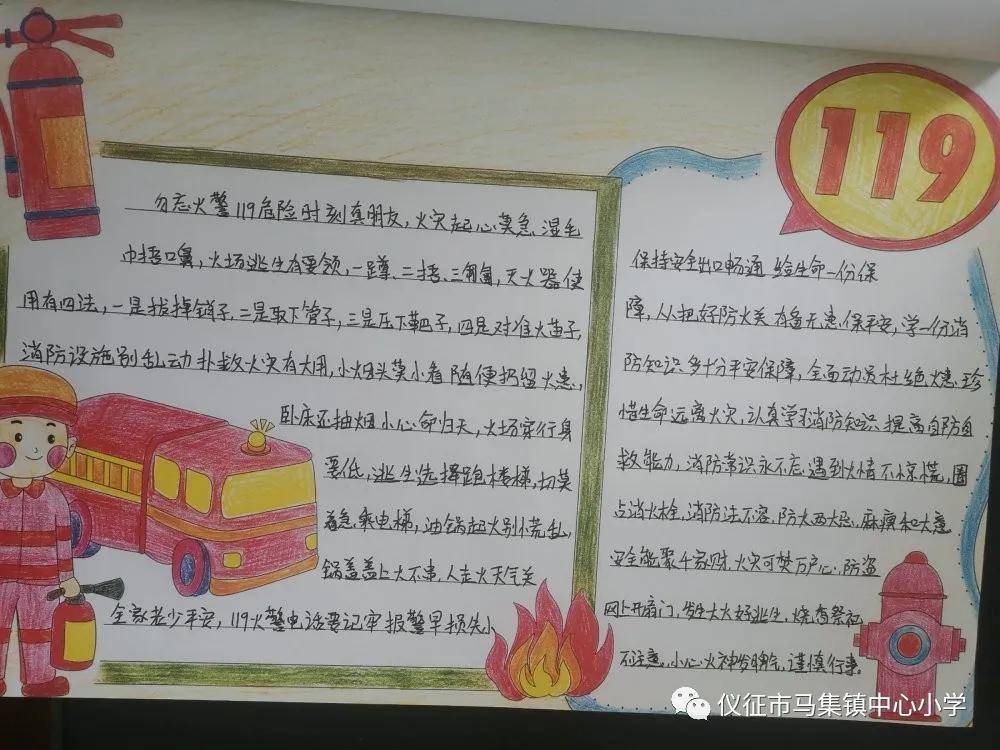 119
勿忘火警119危险时刻真朋友,火灾起心莫急 湿毛
巾捂口鼻,火场逃生有要领,一蹲、二捂、三匍匐,灭火器使
用有四法,一是拔掉销子,二是取下管子,三是压下靶子,四是对准火苗子,
消防设施别乱动 扑救火灾有大用,小烟头莫小看 随便扔留火患,
卧床还抽烟 小心命归天,火场穿行身
要低,逃生选择跑楼梯,切莫
着急乘电梯,油锅起火别慌乱,
锅盖盖上大不患,人走火灭气关
全家老少平安,119火警电话要记牢 报警早损失小
保持安全出口畅通 给生命一份保
障,人人把好防火关 有备无患保平安,学一份消
防知识 多十分平安保障,全面动员杜绝火患,珍
惜生命远离火灾,认真学习消防知识 提高自防自
救能力,消防常识永不忘 遇到火情不惊慌,圈
占消火栓,消防法不容,防火两大忌,麻痹和大意
安全能聚千家财,火灾可焚万户心,防盗
网上开扇门,发生大火好逃生,烧香祭祀
不注意,小心火神发脾气,谨慎行事。
仪征市马集镇中心小学